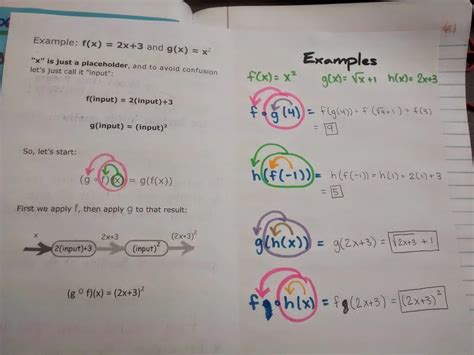 Example: f(x) = 2x+3 and g(x) = x²
"x" is just a placeholder, and to avoid confusion
let's just call it "input":
f(input) = 2(input)+3
g(input) = (input)²
So, let's start:
(g ∘ f)(x) = g(f(x))
First we apply f, then apply g to that result:
x 2x+3 (2x+3)²
2(input)+3 (input)²
(g ∘ f)(x) = (2x+3)²
Examples
f(x) = x² g(x) = √x + 1 h(x) = 2x+3
f ∘ g(4) = f(g(4)) = f(√4 + 1) = f(3)
= 9
h(f(-1)) = h(f(-1)) = h(1) = 2(1)+3
= 5
g(h(x)) = g(2x+3) = √2x+3 + 1
f ∘ h(x) = f(2x+3) = (2x+3)²